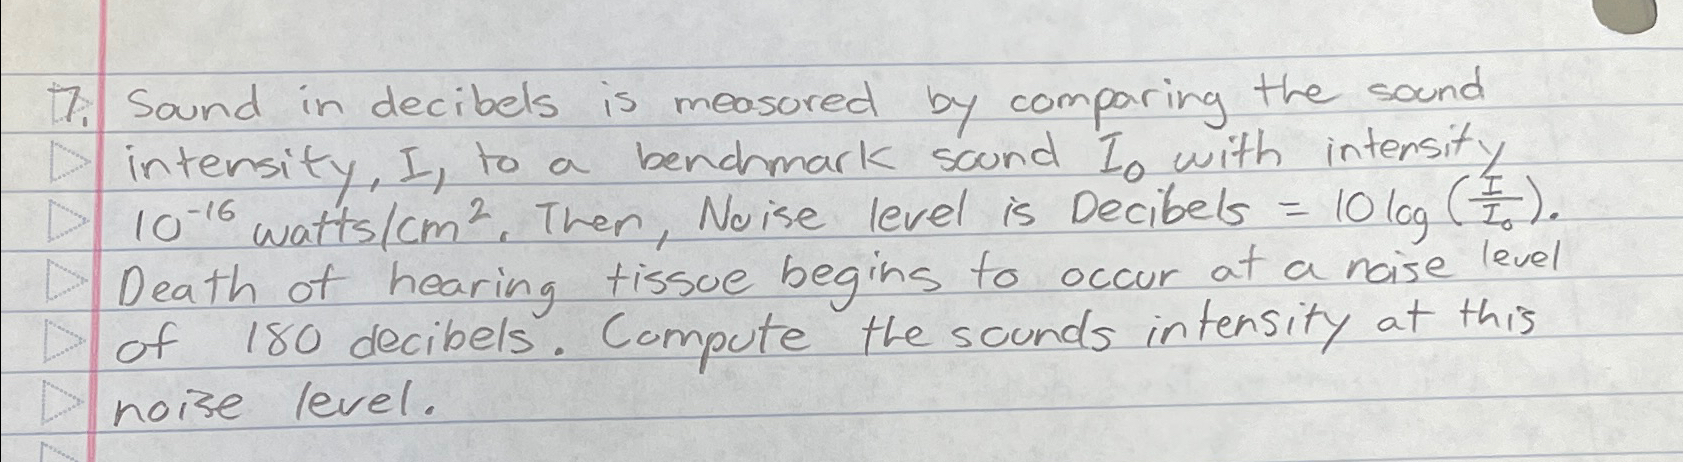 7. Sound in decibels is measured by comparing the sound
intensity, I, to a benchmark sound I₀ with intensity
10⁻¹⁶ watts/cm². Then, Noise level is Decibels = 10 log (I/I₀).
Death of hearing tissue begins to occur at a noise level
of 180 decibels. Compute the sounds intensity at this
noise level.